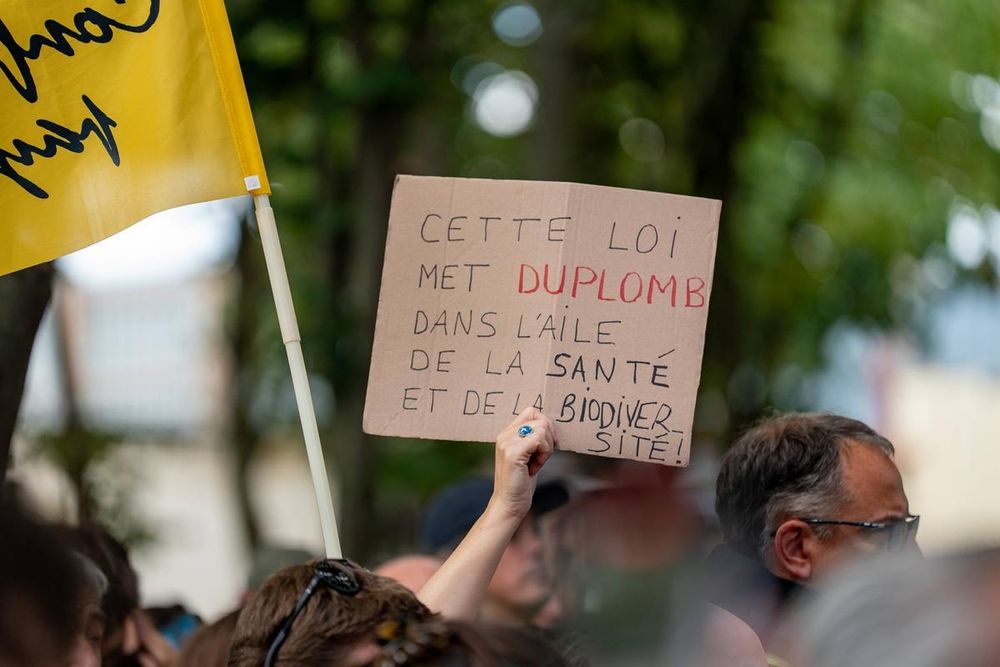 CETTE LOI
MET DUPLOMB
DANS L'AILE
DE LA SANTÉ
ET DE LA BIODIVER-
SITÉ!